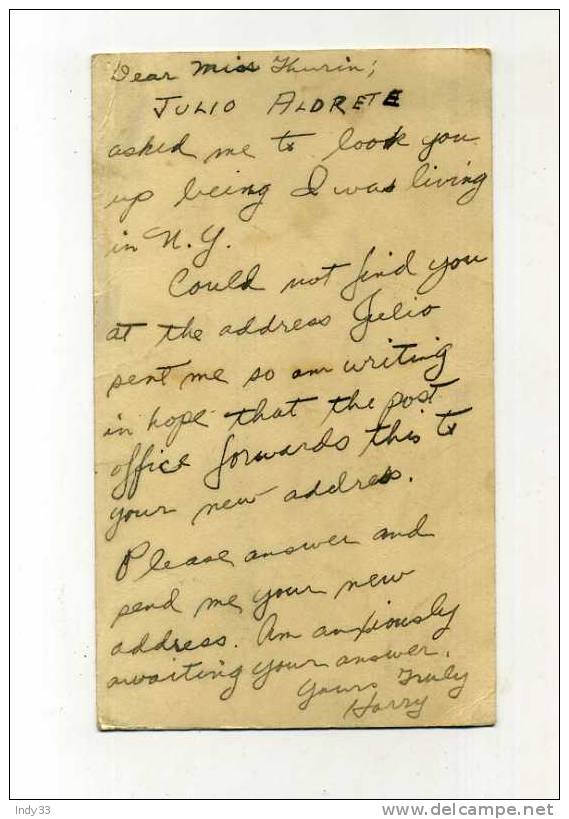 Dear Miss Thurin;
JULIO ALDRETE
asked me to look you
up being I was living
in N.Y.
Could not find you
at the address Julio
sent me so am writing
in hope that the post
office forwards this to
your new address.
Please answer and
send me your new
address. Am anxiously
awaiting your answer.
Yours Truly
Harry
Indy33
delcampe.net